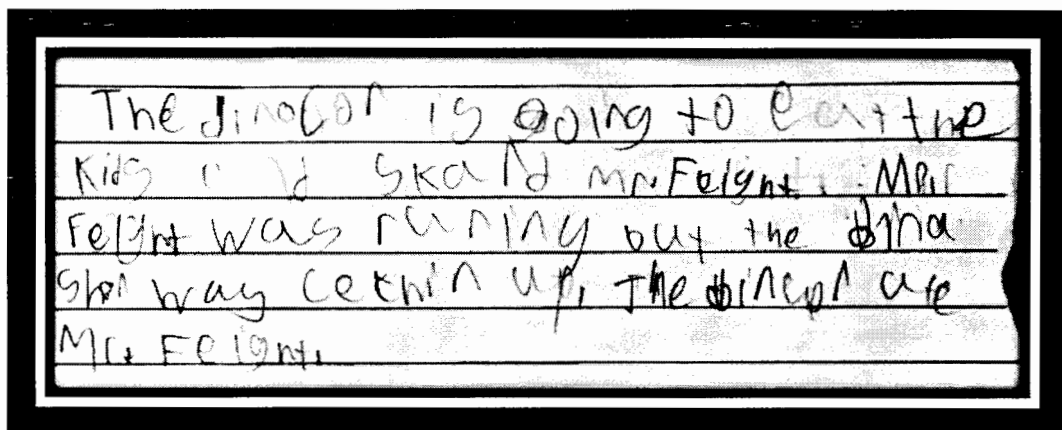 The dinosor is going to eat the
Kids skard Mr. Feight. Mr.
Feight was runing but the dina
shor was cechin up. The dincor are
Mr. Feight.